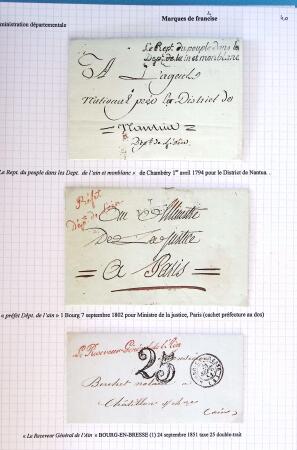 Marques de francise
ministration départementale
Le Rept. du peuple dans les
Dept. de l'ain et montblanc
A L'agent
National près le District de
= Nantua =
Dept. de l'ain
Le Rept. du peuple dans les Dept. de l'ain et monblanc » de Chambéry 1er avril 1794 pour le District de Nantua .
Préfet
Dépt. de l'ain
Au Ministre
De La Justice
= A Paris =
« préfet Dépt. de l'ain » 1 Bourg 7 septembre 1802 pour Ministre de la justice, Paris (cachet préfecture au dos)
Le Receveur Général de l'Ain
25
notaire
Châtillon
(ain)
« Le Receveur Général de l'Ain » BOURG-EN-BRESSE (1) 24 septembre 1851 taxe 25 double-trait